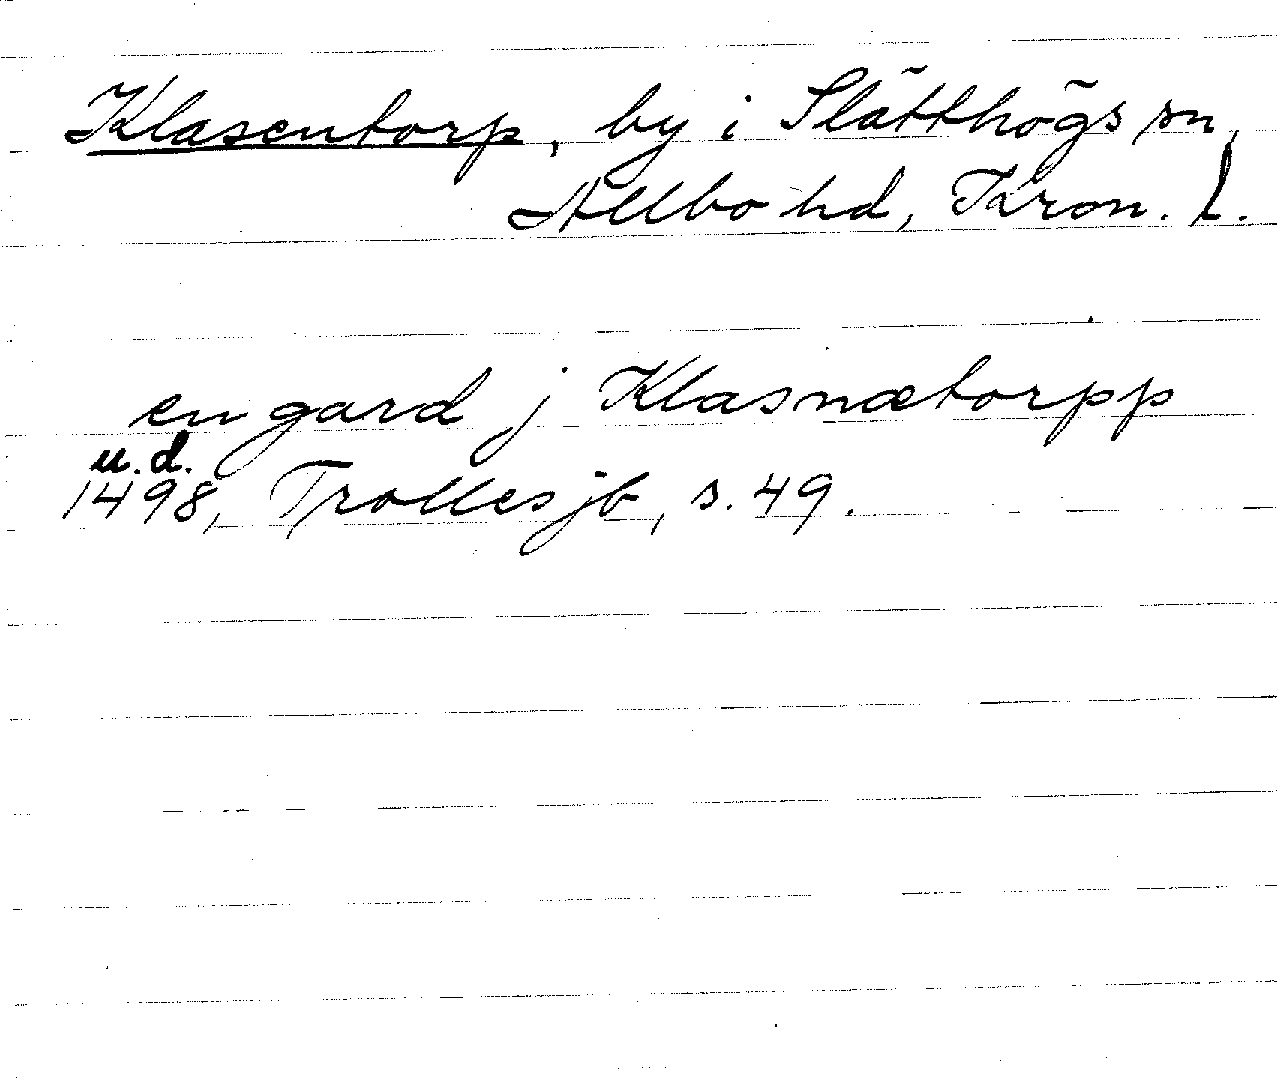 Klasentorp, by i Slätthögs sn,
Allbo hd, Kron. l.
en gard j Klasnætorpp
u.d.
1498, Trolles jb, s. 49.